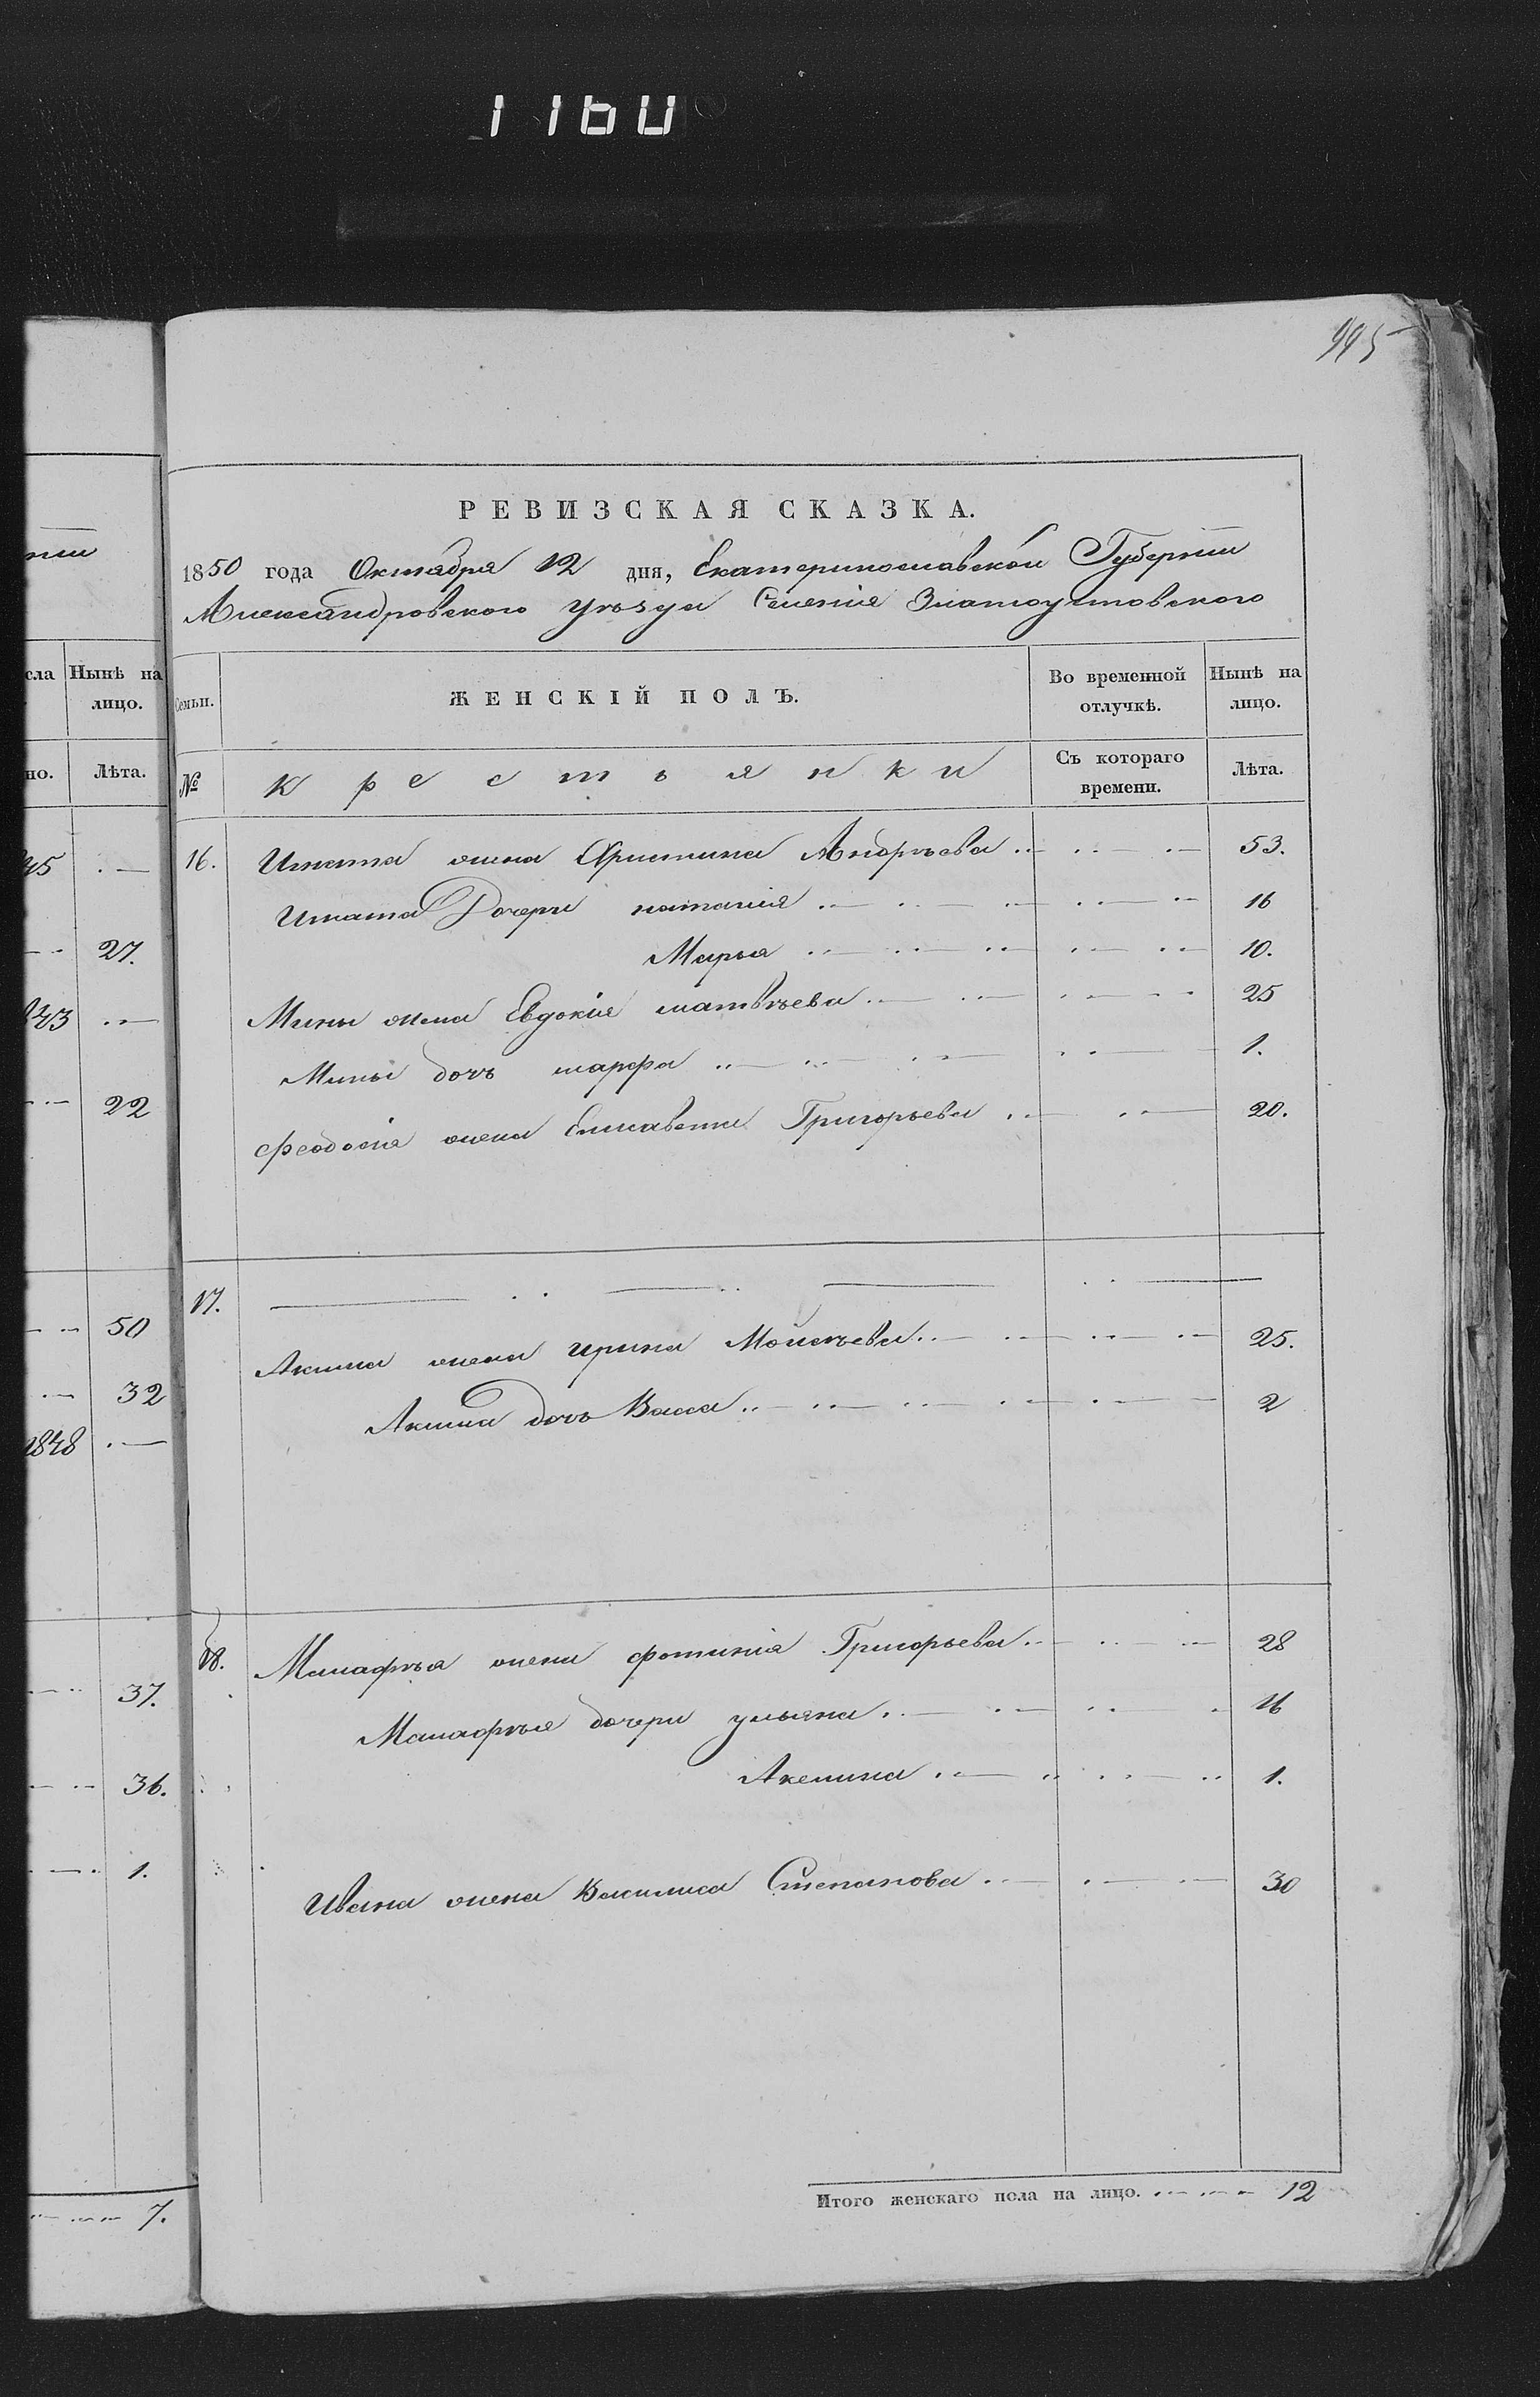 1160
995
РЕВИЗСКАЯ СКАЗКА.
1850 года Октября 12 дня, Екатеринославской Губернии
Александровского уѣзда Селения Златоустовского
сла Нынѣ на лицо.
но. Лѣта.
45 . —
— 27.
43 . —
— 22
— 50
— 32
1848 . —
— 37.
— 36.
— 1.
— 7.
Семьи. ЖЕНСКІЙ ПОЛЪ. Во временной отлучкѣ. Нынѣ на лицо.
№ Крестьянки Съ котораго времени. Лѣта.
16. Игната жена Христина Андрѣева 53.
Игната Дочери наталия 16
Марья 10.
Мины жена Евдокия матвѣева 25
Мины дочь марфа 1.
Феодосия жена Елисавета Григорьева 20.
17.
Акима жена ирина Мойсѣева 25.
Акима дочь Васса 2
18. жена фотиния Григорьева 28
дочери ульяна 16
Акелина 1.
Ивана жена Василиса Степанова 30
Итого женскаго пола на лицо. 12